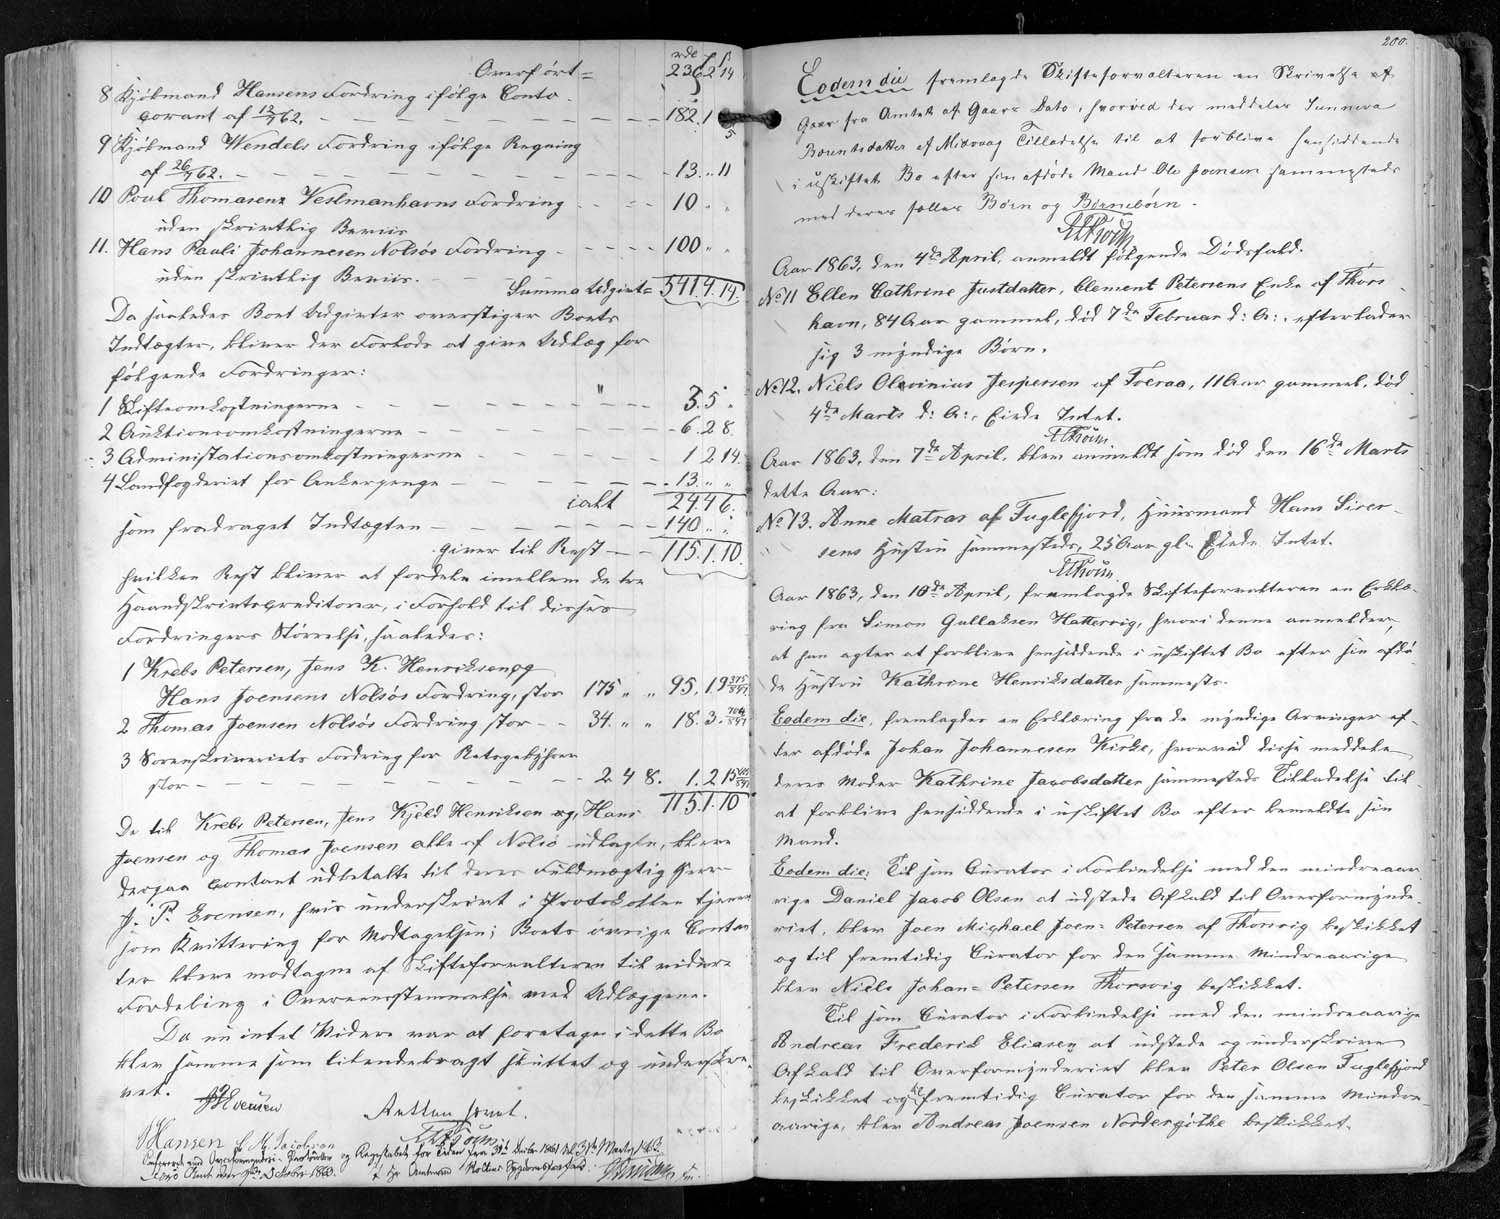 Overført =
rdl
236 2 14
8 Kjøbmand Hansens Fordring ifølge Conto
corant af 12/7 62. 182. 1
9 Kjøbmand Wendels Fordring ifølge Regning
af 26/7 62. 13. " 11
10 Poul Thomasens Vestmanhavns Fordring 10 " "
uden skrivtlig Beviis
11. Hans Pauli Johannesen Nolsøs Fordring 100 " "
uden skrivtlig Beviis. Summa Udgivt = 541. 4. 14.
Da saaledes Boet Udgivter overstiger Boets
Indtægter, bliver der forlods at give Udlæg for
følgende Fordringer:
1 Skifteomkostningerne 3. 5 "
2 Auktionsomkostningerne 6. 2 8.
3 Administrationsomkostningerne 1 2 14.
4 Landfogderiet for Ankerpenge 13. " "
ialt 24. 4 6.
som fradraget Indtægten 140 " "
giver til Rest 115. 1. 10.
hvilken Rest bliver at fordele imellem de tre
Haandskrivtscreditorer, i Forhold til disses
Fordringers Størrelse, saaledes:
1 Krebs Petersen, Jens K. Henriksen og
Hans Joensens Nolsøs Fordring, stor 175 " " 95. 1. 9
2 Thomas Joensen Nolsøs Fordring stor 34. " " 18. 3.
3 Sorenskriveriets Fordring for Retsgebyhrer
stor 2 4 8. 1. 2 15
115. 1. 10
De til Krebs Petersen, Jens Kjeld Henriksen og Hans
Joensen og Thomas Joensen alle af Nolsø udlagte, bleve
derpaa contant udbetalte til deres Fuldmægtig Herr
J. P. Evensen, hvis underskrivt i Protokollen tjener
som Kvittering for Modtagelsen; Boets øvrige Contan
ter bleve modtagne af Skifteforvalteren til videre
Fordeling i Overeensstemmelse med Udlæggene.
Da nu intet Videre var at foretage i dette Bo
blev samme som tilendebragt sluttet og underskre-
vet.
Evensen
Retten hævet.
Hansen Jacobsen
og Registeret for Tiden fra 31te Decbr 1861 til 31te Marts 1863
200.
Eodem die fremlagde Skifteforvalteren en Skrivelse af
Gaar fra Amtet af Gaars Dato, hvorved der meddeles Sunneva
Berentsdatter af Midvaag Tilladelse til at forblive hensiddende
i uskiftet Bo efter sin afdøde Mand Ole Joensen sammesteds
med deres fælles Børn og Børnebørn.
Aar 1863, den 4de April, anmeldt følgende Dødsfald.
No 11 Ellen Cathrine Justdatter, Clement Petersens Enke af Thors
havn, 84 Aar gammel, død 7de Februar d: A:, efterlader
sig 3 myndige Børn.
No 12. Niels Olevinius Jespersen af Toeraa, 11 Aar gammel, død
4de Marts d: A:. Eiede Intet.
Aar 1863, den 7de April, blev anmeldt som død den 16de Marts
dette Aar:
No 13. Anne Matras af Fuglefjord, Huusmand Hans Siver-
sens Hustru sammesteds, 25 Aar gl. Eiede Intet.
Aar 1863, den 10de April, fremlagde Skifteforvalteren en Erklæ-
ring fra Simon Gullaksen Hattervig, hvori denne anmelder,
at han agter at forblive hensiddende i uskiftet Bo efter sin afdø-
de Hustru Kathrene Henriksdatter sammests.
Eodem die, fremlagdes en Erklæring fra de myndige Arvinger ef-
ter afdøde Johan Johannesen Kirke, hvorved disse meddele
deres Moder Kathrine Jacobsdatter sammesteds Tilladelse til
at forblive hensiddende i uskiftet Bo efter bemeldte sin
Mand.
Eodem die: Til som Curator i Forbindelse med den mindreaar
rige Daniel Jacob Olsen at udstede Afkald til Overformynde-
riet, blev Joen Michael Joen= Petersen af Thorsvig beskikket
og til fremtidig Curator for den samme Mindreaarige
blev Niels Johan= Petersen Thorsvig beskikket.
Til som Curator i Forbindelse med den mindreaarige
Andreas Frederik Eliasen at udstede og underskrive
Afkald til Overformynderiet blev Peter Olsen Fuglefjord
beskikket og til fremtidig Curator for den samme Mindre
aarige, blev Andreas Joensen Nordregøthe beskikket.